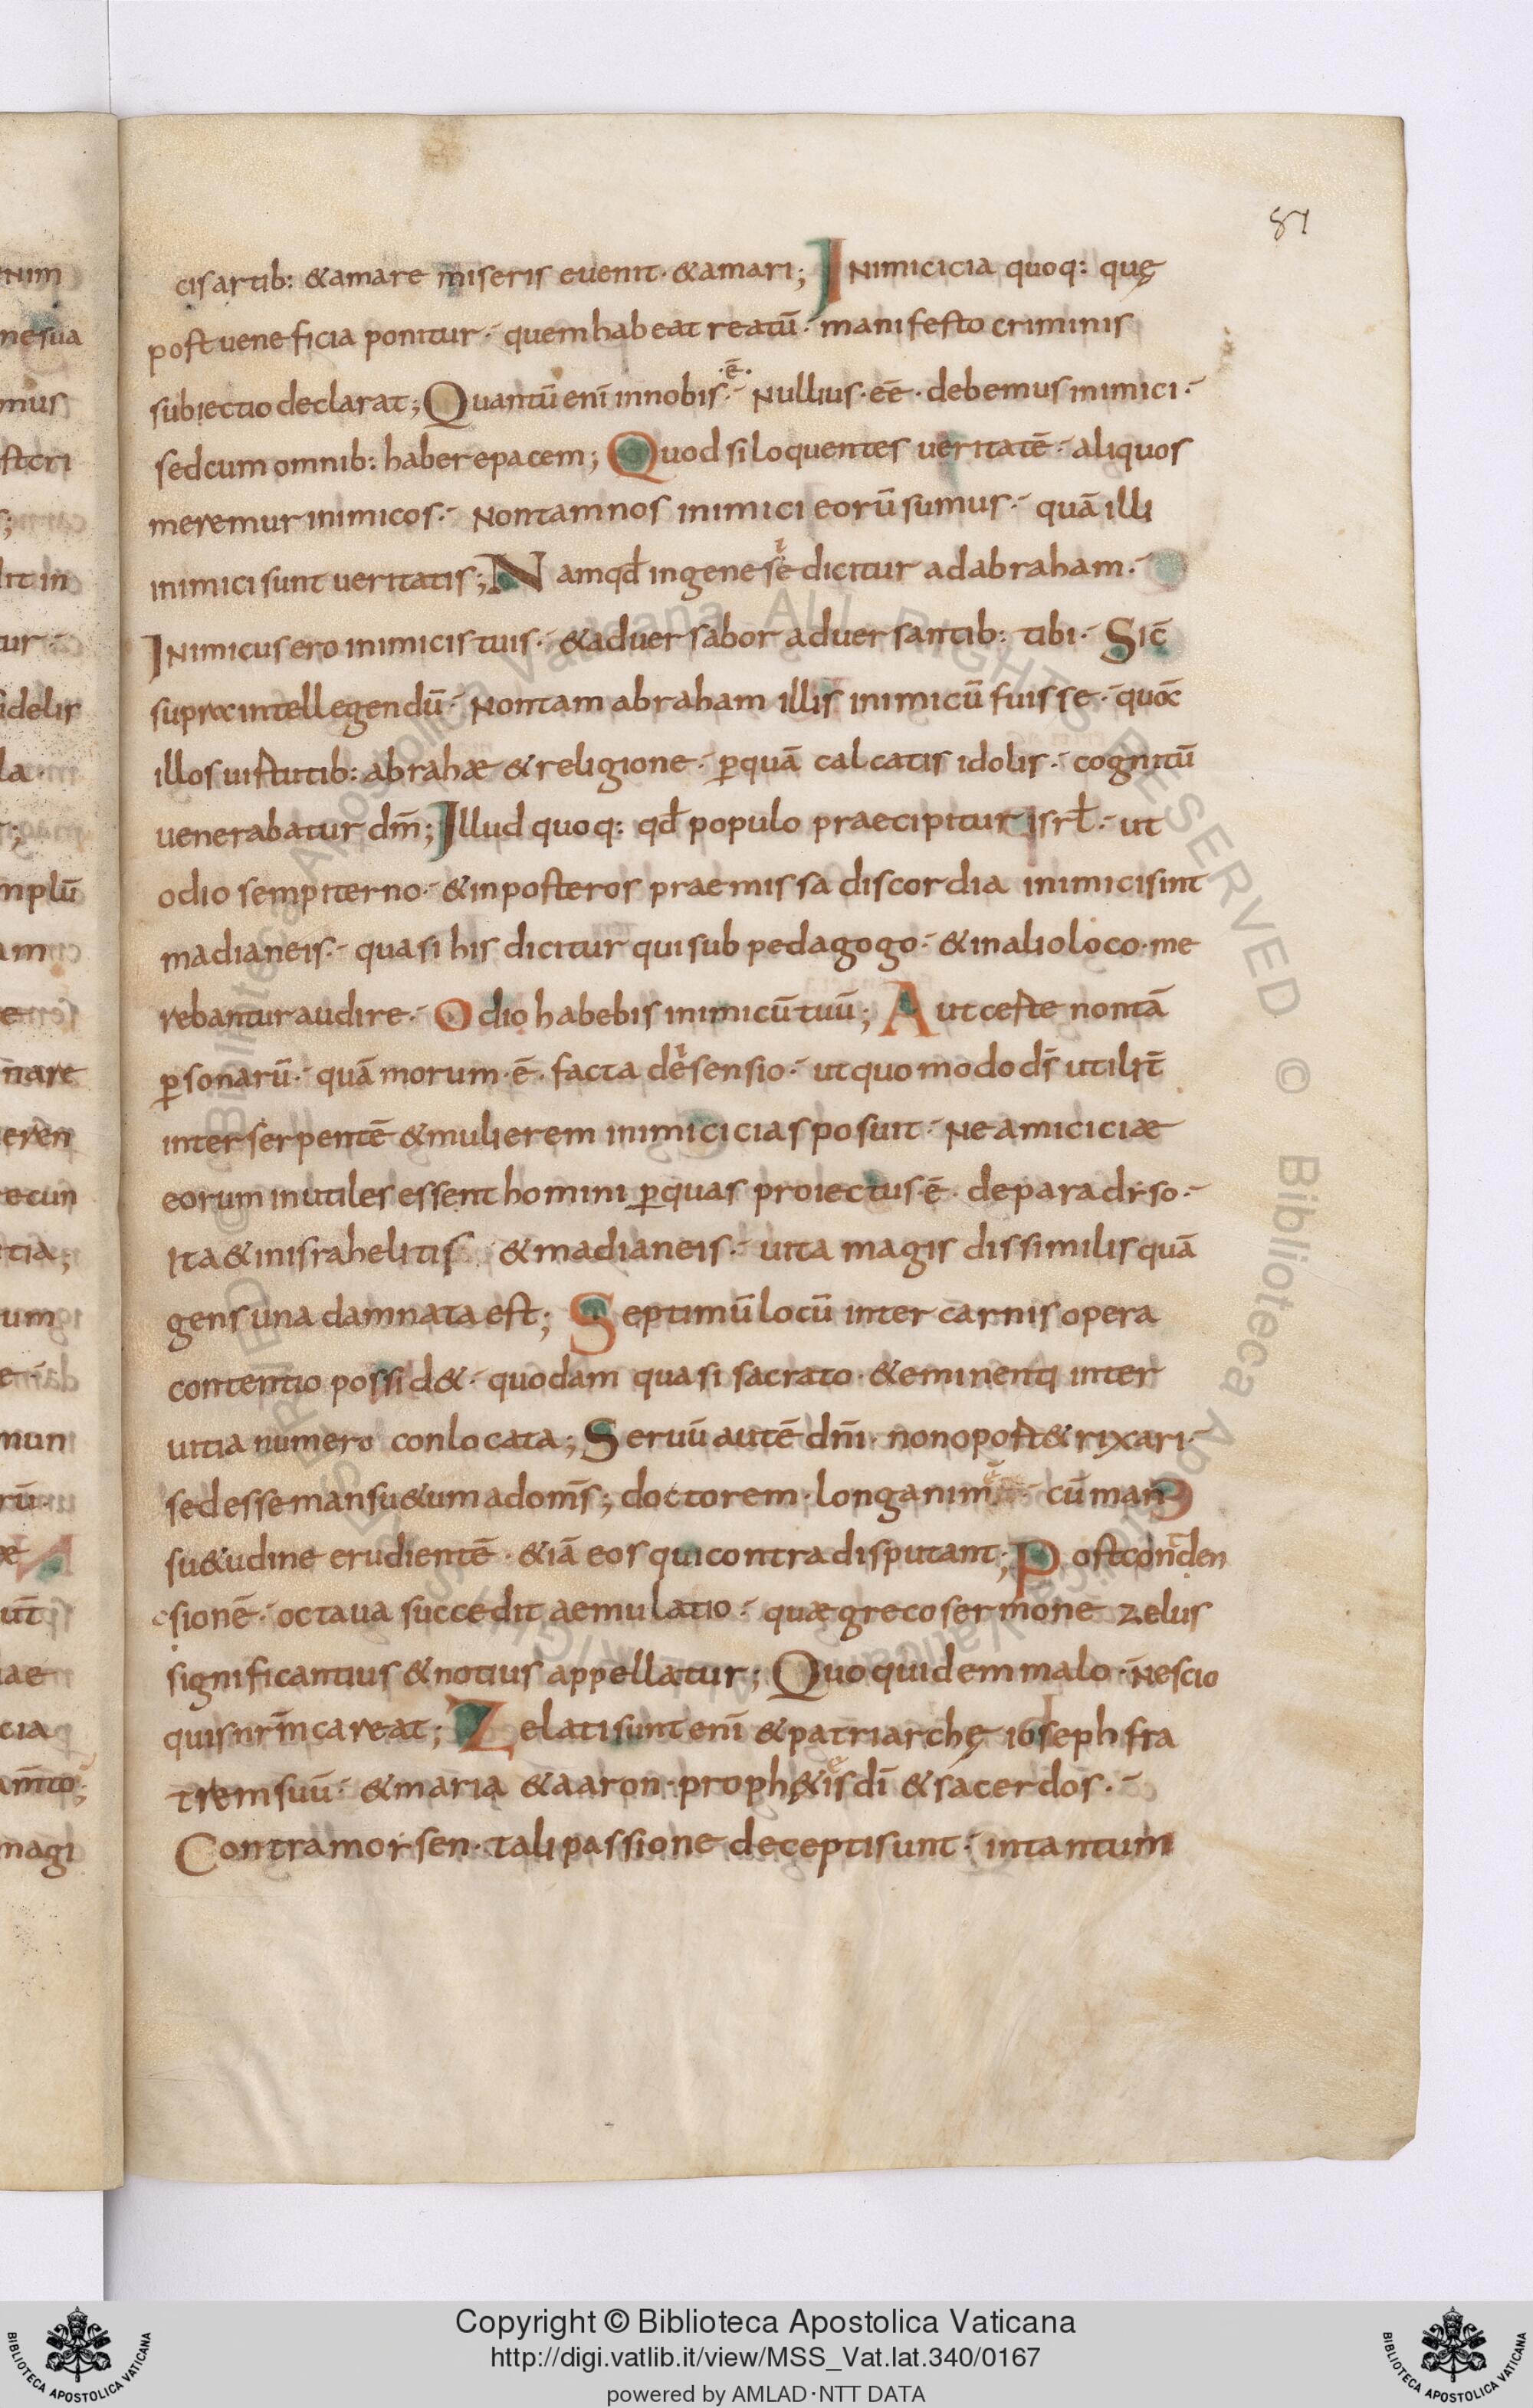 81
cis artib: & amare miseris euenit · & amari; Inimicicia quoq: quę
post ueneficia ponitur · quem habeat reatū · manifesto criminis
subiectio declarat; Quantū enī in nobis ·ē· Nullius · eē · debemus inimici ·
sed cum omnib: habere pacem; Quod si loquentes ueritatē · aliquos
meremur inimicos · Non tam nos inimici eorū sumus · quā illi
inimici sunt ueritatis; Nam qđ in genesẹi dicitur ad abraham ·
Inimicus ero inimicis tuis · & aduersabor aduersantib: tibi · Sic̄
supra intellegendū · Non tam abraham illis inimicū fuisse · quō
illos uirtutib: abrahæ & religione · ꝑ quā calcatis idolis · cognitū
uenerabatur dm̄; Illud quoq: qđ populo praecipitur isrł · ut
odio sempiterno · & in posteros praemissa discordia inimici sint
madianeis · quasi his dicitur qui sub pedagogo · & in alio loco · me
rebantur audire · Odio habebis inimicū tuū; Aut certe non tā
ꝑsonarū · quā morum · ē · facta desensio · ut quomodo ds̄ utilit̄
inter serpentē & mulierem inimicicias posuit · Ne amiciciæ
eorum inutiles essent homini ꝑ quas proiectus · ē · de paradiso ·
Ita & in israhelitis & madianeis · uita magis dissimilis quā
gens una damnata est; Septimū locū inter carnis opera
contentio possid& · quodam quasi sacrato · & eminenti inter
uitia numero conlocata; Seruū autē dn̄i · non oport& rixari ·
sed esse mansu&um ad om̄s; doctorem · longanimē · cū man
su&udine erudientē · &iā eos qui contra disputant; Post con̄den
sionē · octaua succedit aemulatio · quæ greco sermone zelus
significantius & notius appellatur; Quo quidem malo · Nescio
quis nr̄m careat; Zelati sunt enī & patriarchę ioseph fra
trem suū · & maria & aaron · proph&is dī & sacerdos ·
Contra moisen · tali passione decepti sunt · in tantum
Copyright © Biblioteca Apostolica Vaticana
http://digi.vatlib.it/view/MSS_Vat.lat.340/0167
powered by AMLAD·NTT DATA